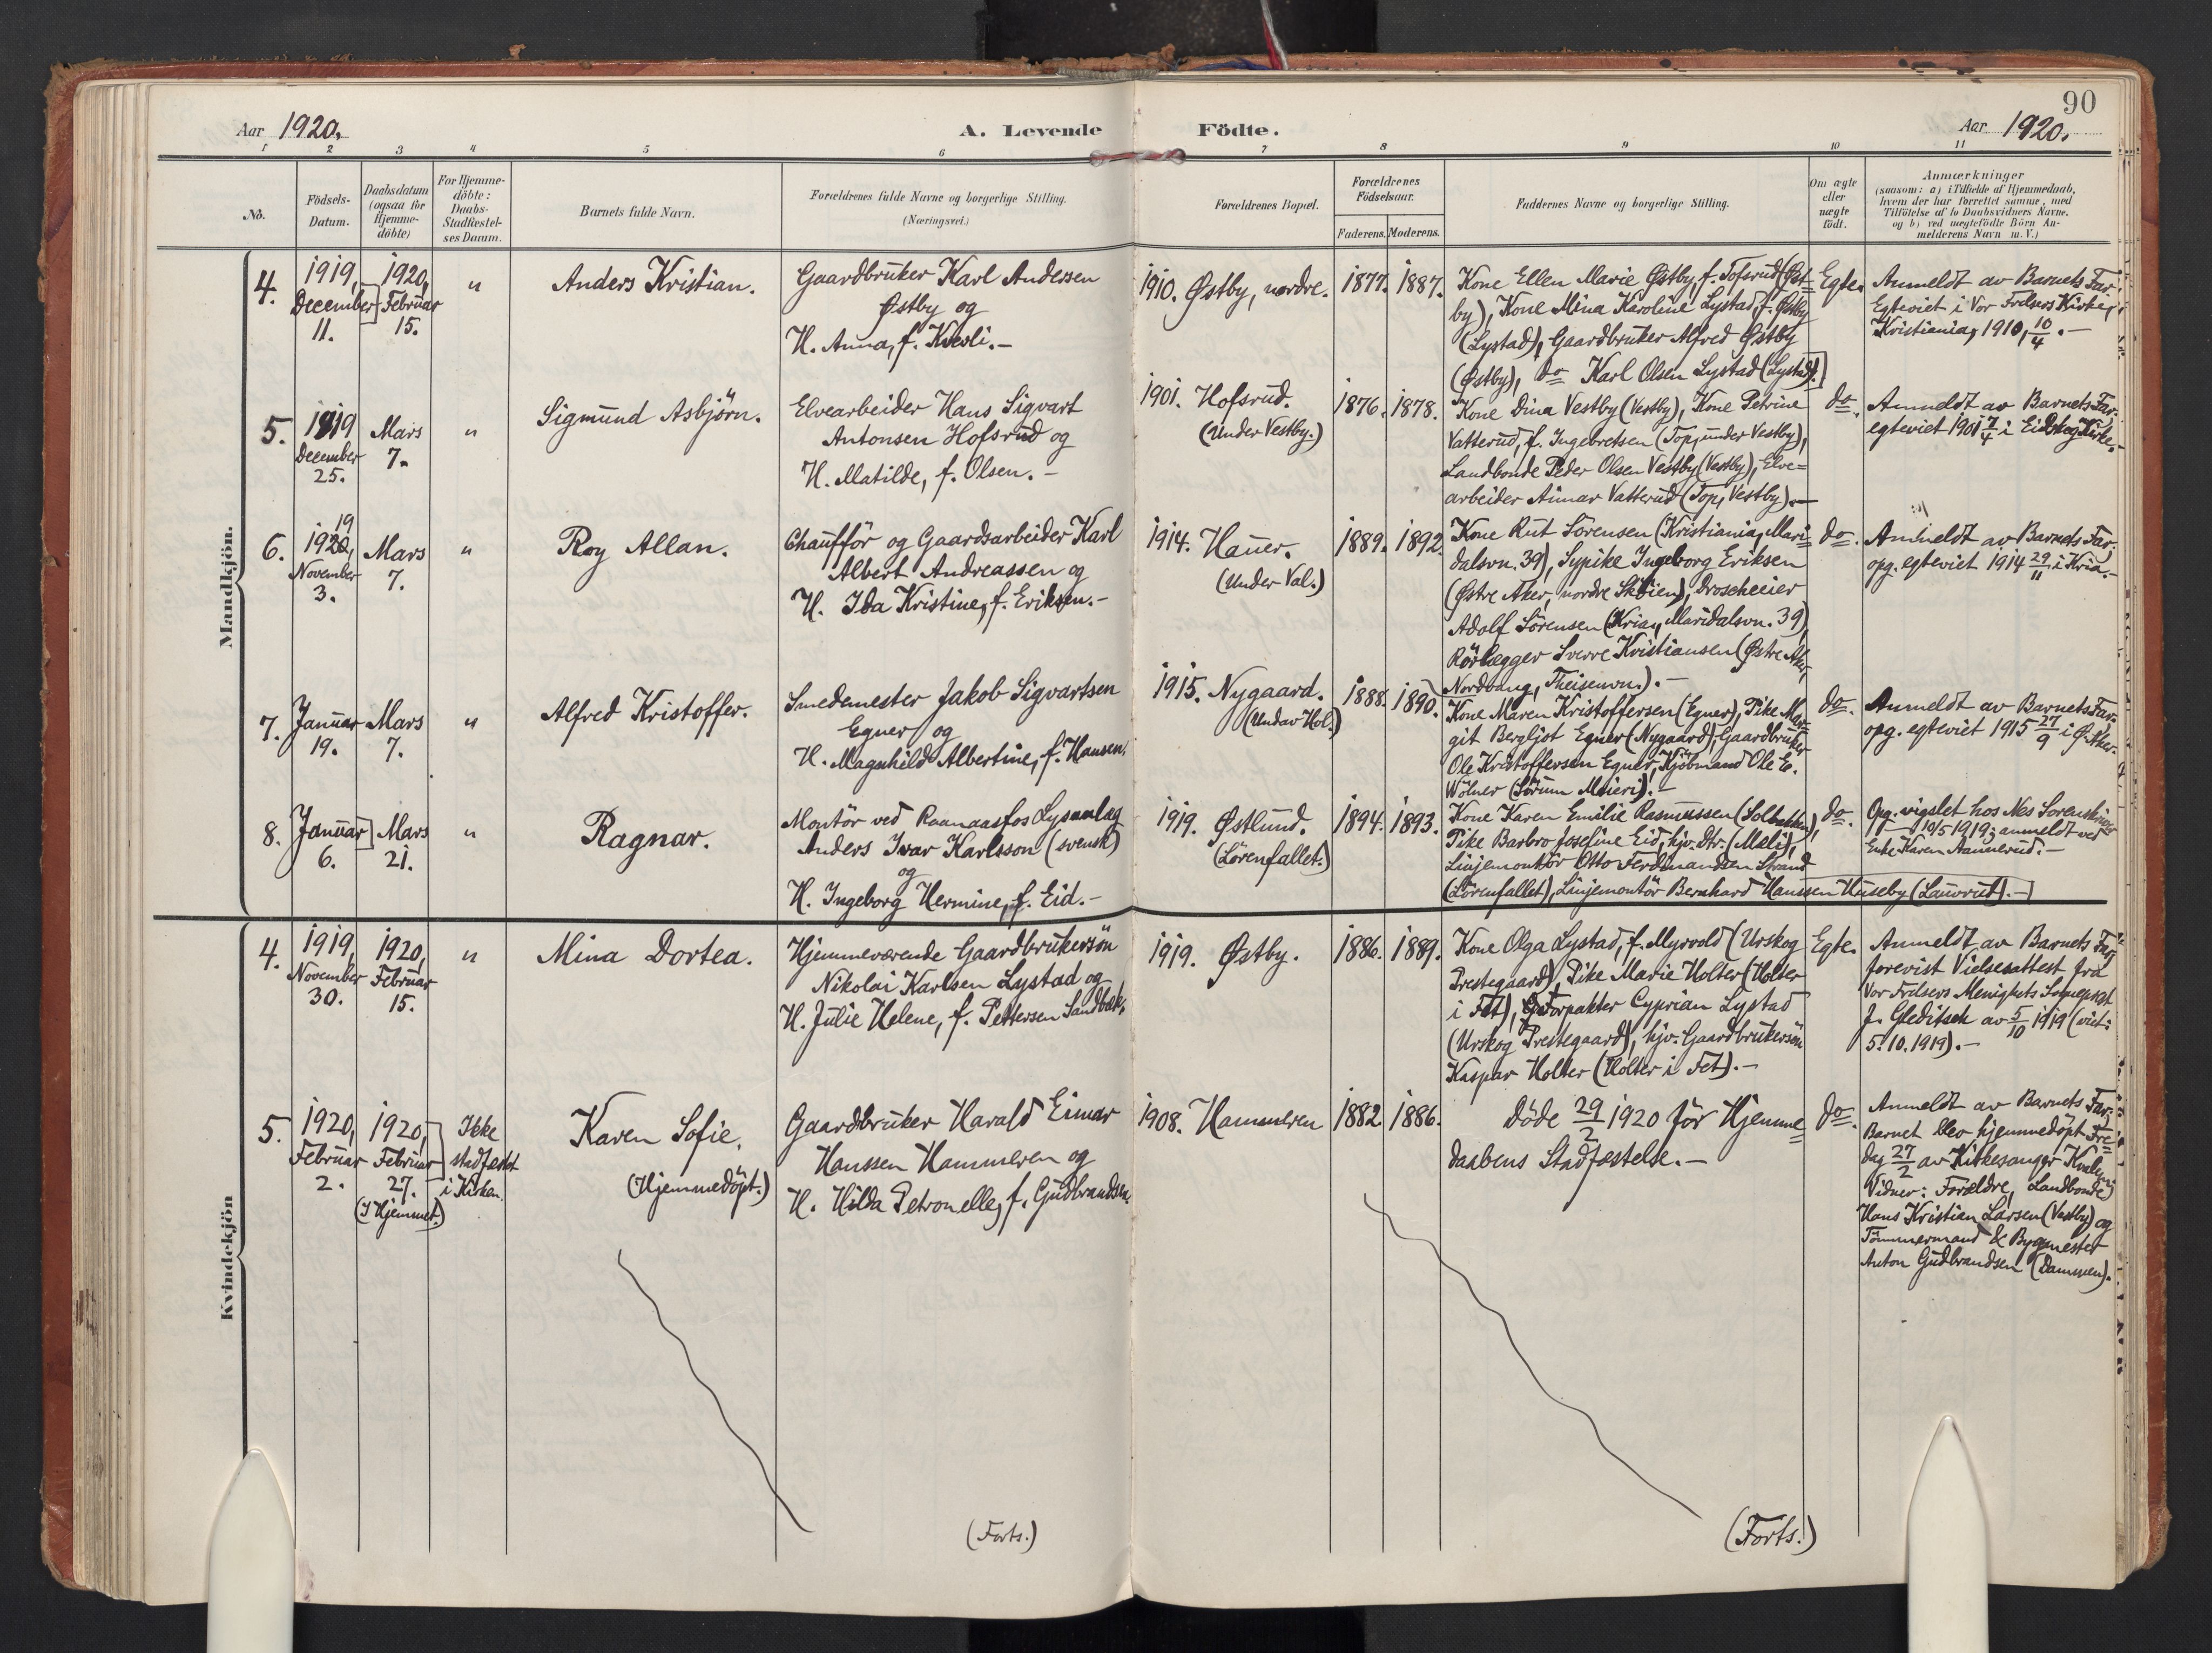 90
Aar 1920.
A. Levende Födte.
Aar 1920.
1 2 3 4 5 6 7 8 9 10 11
No.
Födsels-
Datum.
Daabsdatum
(ogsaa for
Hjemme-
döbte)
For Hjemme-
döbte:
Daabs-
Stadfæstel-
ses Datum.
Barnets fulde Navn.
Forældrenes fulde Navne og borgerlige Stilling.
(Næringsvei.)
Forældrenes Bopæl.
Forældrenes
Födselsaar.
Faderens. Moderens.
Faddernes Navne og borgerlige Stilling.
Om ægte
eller
uægte
födt.
Anmærkninger
(saasom: a) i Tilfælde af Hjemmedaab,
hvem der har forrettet samme, med
Tilföielse af to Daabsvidners Navne,
og b) ved uægtefödte Börn An-
melderens Navn m. V.)
Mandkjön.
4.
1919,
December
11.
1920,
Februar
15.
"
Anders Kristian.
Gaardbruker Karl Andersen
Østby og
H. Anna, f. Kverli.-
1910. Østby, nordre.
1877. 1887.
Kone Ellen Marie Østby, f. Tofsrud (Øst-
by), Kone Mina Karoline Lystad, f. Østby
(Lystad), Gaardbruker Alfred Østby
(Østby), do Karl Olsen Lystad (Lystad).
Egte.
Anmeldt av Barnets Far,
Egteviet i Vor Frelsers Kirke,
Kristiania, 1910, 10/4.-
5.
1919
December
25.
Mars
7.
"
Sigmund Asbjörn.
Elvearbeider Hans Sigvart
Antonsen Hofsrud og
H. Matilde, f. Olsen.-
1901. Hofsrud.
(Under Vestby.)
1876. 1878.
Kone Dina Vestby (Vestby), Kone Petrine
Vatterud, f. Ingebretsen (Top, under Vestby),
Landbonde Peder Olsen Vestby (Vestby), Elve=
arbeider Aimar Vatterud (Top, Vestby).-
do.
Anmeldt av Barnets Far,
egteviet 1901 7/4 i Eidskog Kirke.-
6.
19
1920,
November
3.
Mars
7.
"
Roy Allan.
Chaufför og Gaardsarbeider Karl
Albert Andreassen og
H. Ida Kristine, f. Eriksen.-
1914. Hauer.
(Under Val.)
1889. 1892.
Kone Rut Sörensen (Kristiania, Mari=
dalsvn. 39), Sypike Ingeborg Eriksen
(Østre Aker, nordre Sköien), Droscheeier
Adolf Sörensen (Kria, Maridalsvn. 39),
Rörlægger Sverre Kristiansen (Østre Aker,
Nordvang, Theisenvn.).-
do.
Anmeldt av Barnets Far,
opg. egteviet 1914 29/11 i Kria.-
7.
Januar
19.
Mars
7.
"
Alfred Kristoffer.
Smedemester Jakob Sigvartsen
Egner og
H. Magnhild Albertine, f. Hansen.
1915. Nygaard.
(Under Hol.)
1888. 1890.
Kone Maren Kristoffersen (Egner), Pike Mar=
git Bergljot Egner (Nygaard), Gaardbruker
Ole Kristoffersen Egner, Kjöbmand Ole E.
Wölner (Sörum Meieri).-
do.
Anmeldt av Barnets Far,
opg. egteviet 1915 27/9 i Ø. Aker.
8.
Januar
6.
Mars
21.
"
Ragnar.
Montör ved Raanaasfos Lysanlæg
Anders Ivar Karlsson (svensk)
og
H. Ingeborg Hermine, f. Eid.-
1919. Østlund.
(Lörenfallet.)
1894. 1893.
Kone Karen Emilie Rasmussen (Solbakken),
Pike Barbro Josefine Eid, hjv. Dtr. (Mæli),
Linjemontör Otto Ferdinandsen Strand
(Lörenfallet), Linjemontör Bernhard Hanssen Huseby (Lauvrut).-
do.
Opg. vigslet hos Nes Sorenskriver
10/5 1919; anmeldt ved
Enke Karen Aannerud.-
Kvindekjön
4.
1919,
November
30.
1920,
Februar
15.
"
Mina Dortea.
Hjemmeværende Gaardbrukersön
Nikolai Karlsen Lystad og
H. Julie Helene, f. Pettersen Sandbæk.
1919. Østby.
1886. 1889.
Kone Olga Lystad, f. Myrvold (Urskog
Prestegaard), Pike Marie Holter (Holter
i Fet), Forpakter Cyprian Lystad
(Urskog Prestegaard), hjv. Gaardbrukersön
Kaspar Holter (Holter i Fet).-
Egte.
Anmeldt av Barnets Far,
forevist Vielsesattest fra
Vor Frelsers Menighets Sogneprest
J. Gleditsch av 5/10 1919 (viet:
5.10.1919).-
5.
1920,
Februar
2.
1920,
Februar
27.
(I Hjemmet.)
Ikke
stadfæstet
i Kirken.
Karen Sofie.
(Hjemmedöpt.)
Gaardbruker Harald Eimar
Hanssen Hammeren og
H. Hilda Petronelle, f. Gudbrandsen.
1908. Hammeren
1882. 1886.
Döde 29/2 1920 för Hjemme=
daabens Stadfæstelse.-
do.
Anmeldt av Barnets Far;
Barnet blev hjemmedöpt Fre=
dag 27/2 av Kirkesanger
Vidner: Forældre, Landbonde
Hans Kristian Larsen (Vestby) og
Tömmermand & Bygmester
Anton Gudbrandsen (Dammen).
(Forts.)
(Forts.)